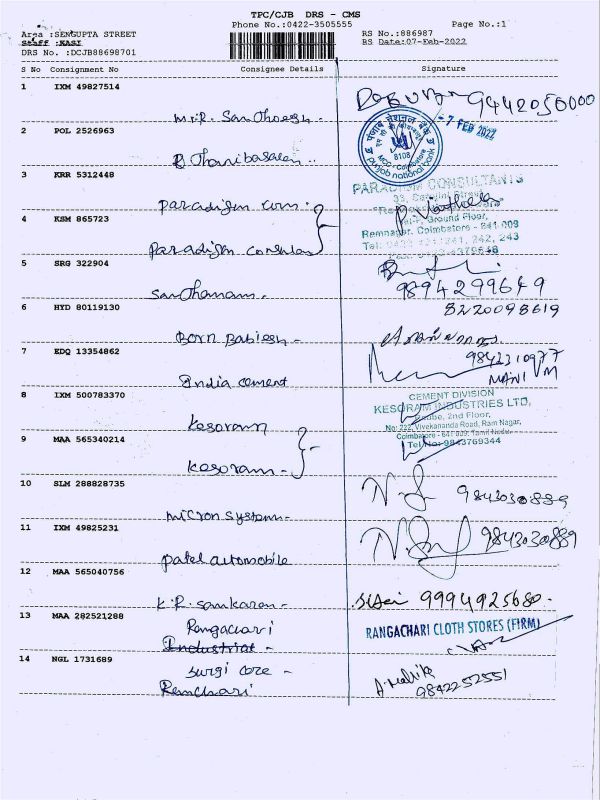 TPC/CJB DRS - CMS
Phone No.:0422-3505555
Page No.:1
Area :SENGUPTA STREET
Staff :KASI
DRS No. :DCJB88698701
RS No.:886987
RS Date:07-Feb-2022
S No Consignment No Consignee Details Signature
1 IXM 49827514
9442050000
Mr.R. Santhosh -
2 POL 2526963
- 7 FEB 2022
punjab national bank
MCC - Coimbatore
8108
3 KRR 5312448
PARADIGM CONSULTANTS
Paradigm Com.
Ground Floor,
4 KSM 865723
Ramnagar, Coimbatore - 641 009
242, 243
Paradigm Consul
5 SRG 322904
9894299649
Santhanam -
8220098619
6 HYD 80119130
Born Babies -
7 EDQ 13354862
9842310977
MANI M
India cement
8 IXM 500783370
CEMENT DIVISION
KESORAM INDUSTRIES LTD,
2nd Floor,
No: 222, Vivekananda Road, Ram Nagar,
Kesoram
Coimbatore - 641 009, Tamil Nadu
9 MAA 565340214
Tel No: 9843769344
Kesoram -
10 SLM 288828735
9843030889
Micron System -
11 IXM 49825231
9843030889
Patel automobile
12 MAA 565040756
9994925680 -
K.R. Sankaran -
13 MAA 282521288
Rangachari
RANGACHARI CLOTH STORES (FIRM)
Industrial -
14 NGL 1731689
Surgi Core -
9842252551
Ramchari